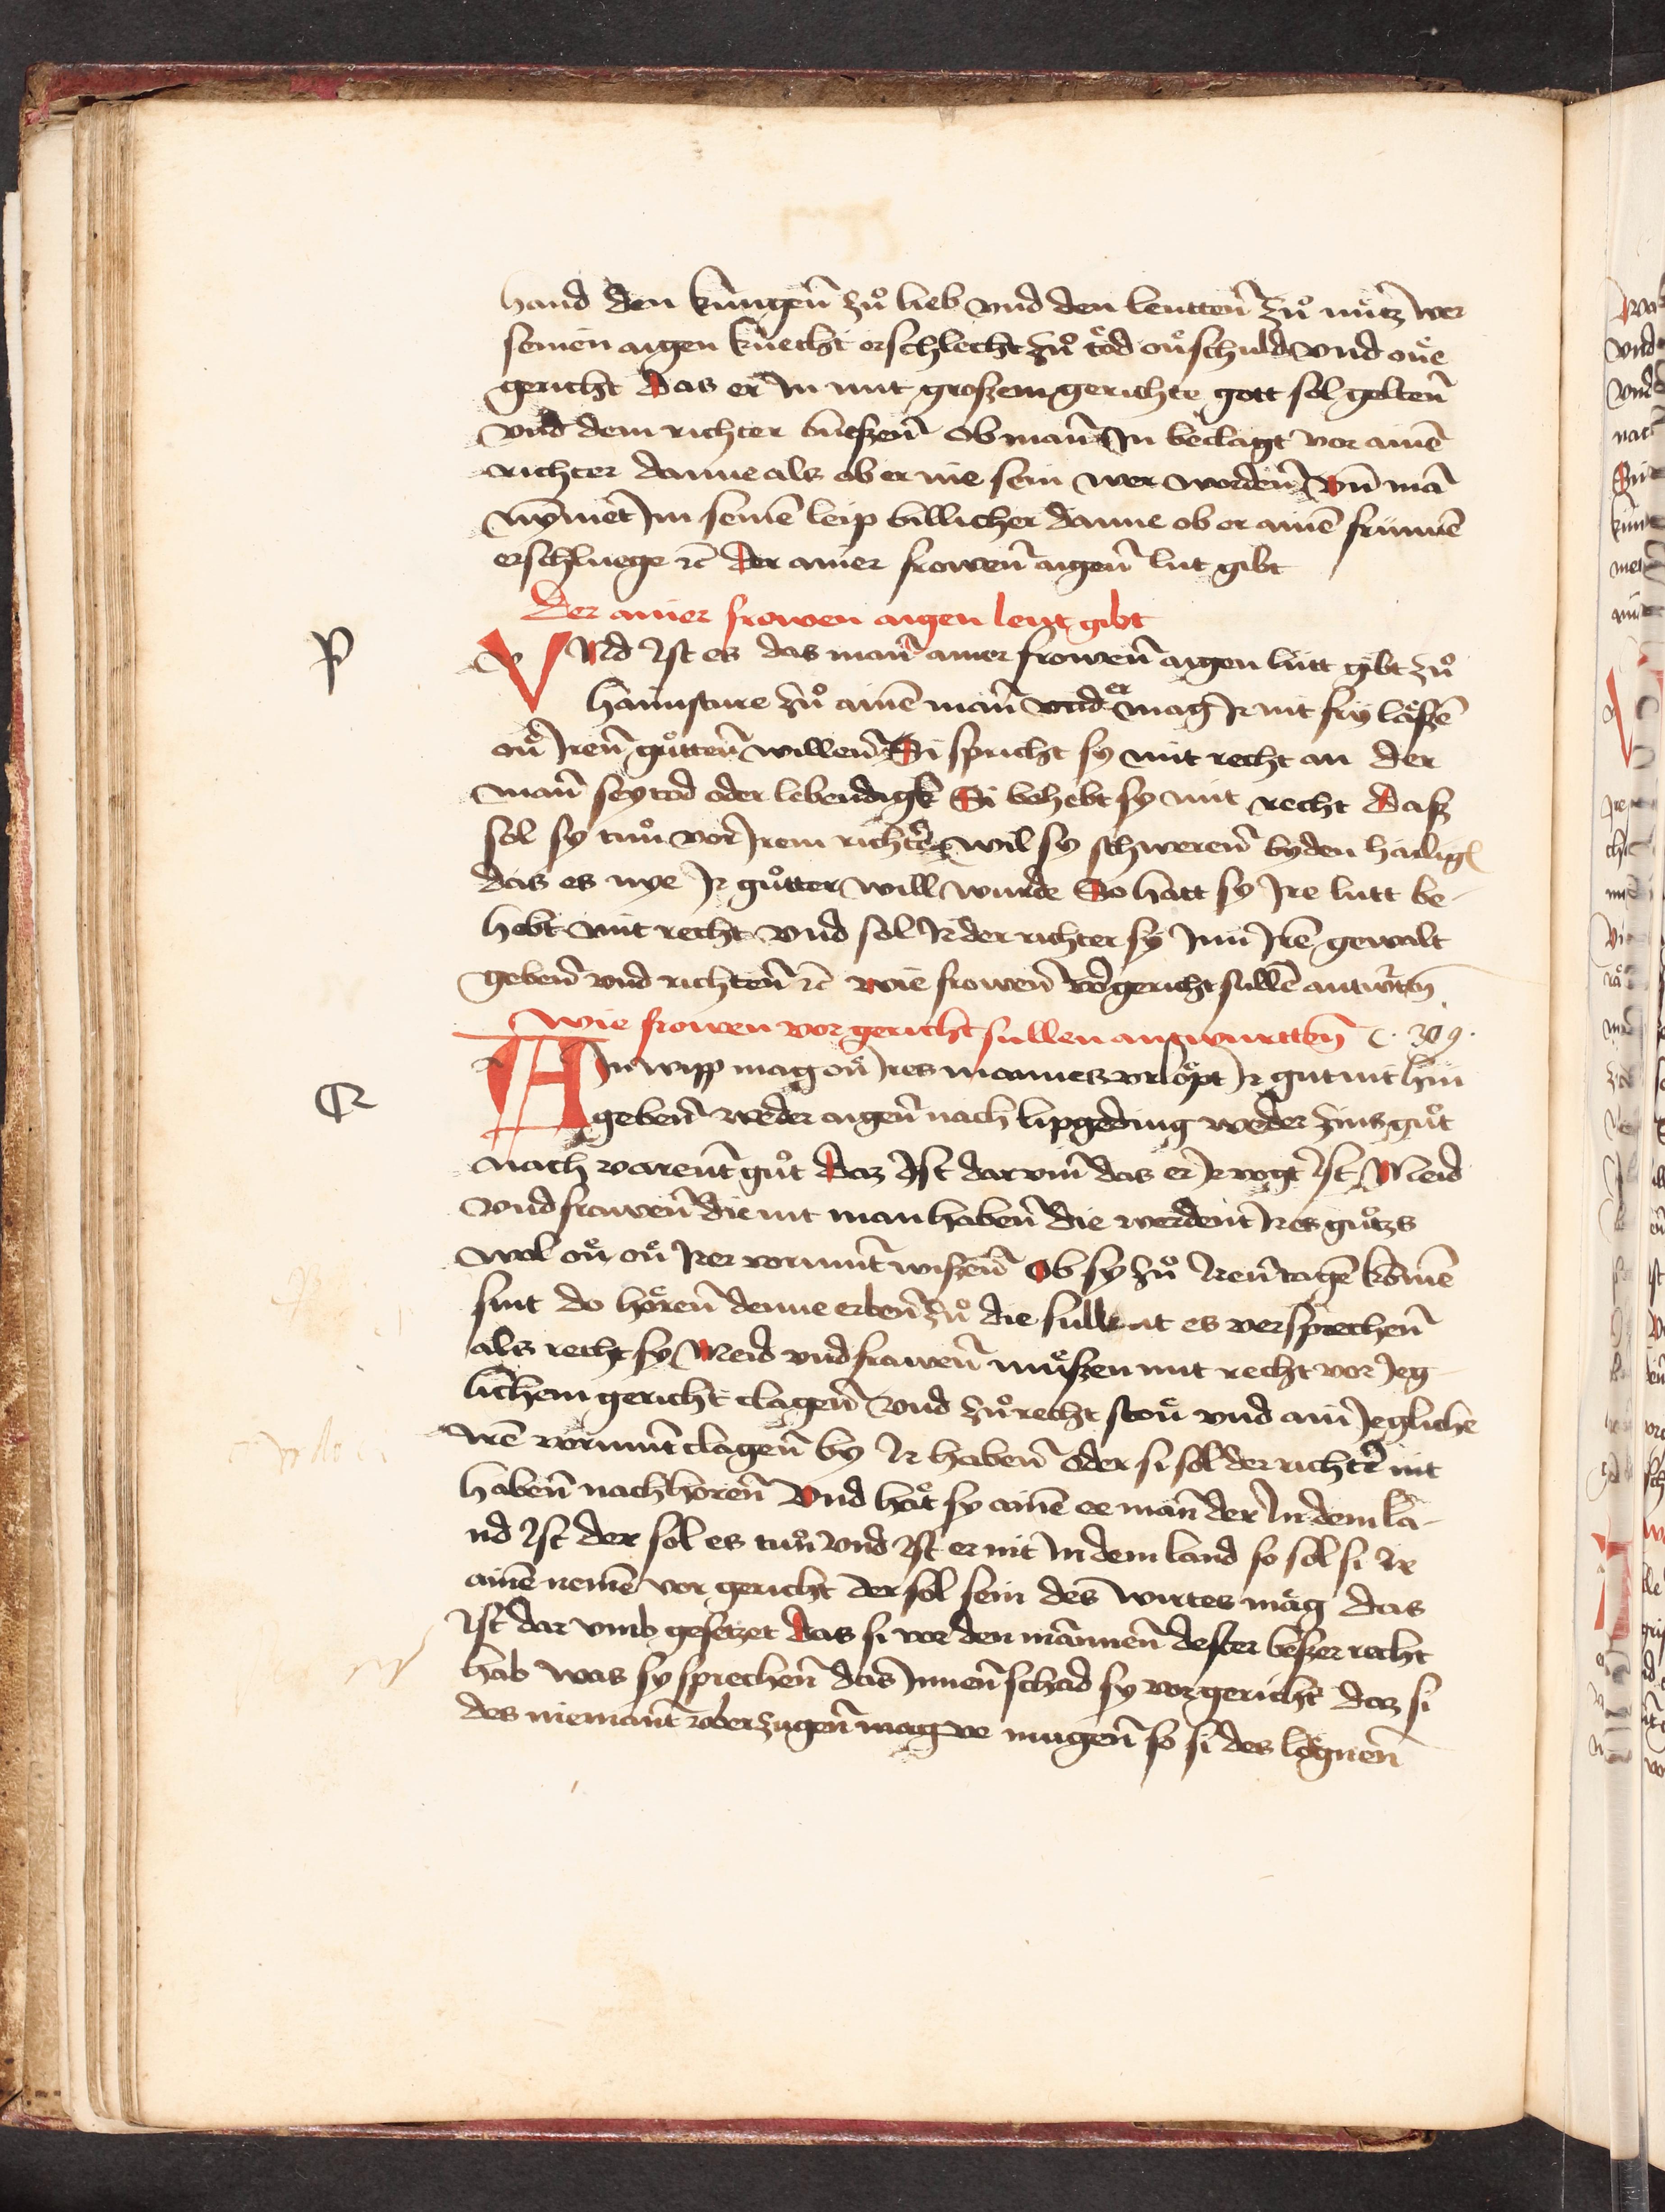 hand den kungen̄ zuͦ lieb vnd den leutten̄ zuͦ nu̇tz wer
seinen aigen knecht erschlecht zuͦ tod on̈ schuld vnd one
gericht Das er In mit groszem gerichte gott sol gelten̄
vnd dem richter buͤszen̄ Ob man̄ In beclagt vor ainē
richter danne als ob er nie sein wer worden̄ Vn̄ mā
nymet Im seinē leip billicher danne ob er ainē frūmē
erschluege ꝛc̄ Der ainer frowen̄ aigen̄ lut gibt
Der ainer frowen aigen leut gibt
P
v VNd Ist es das man̄ ainer frowen̄ aigen lu̇tt gibt zuͦ
haimsture zuͦ ainē man̄ vnd er mag Ir nit fry laͤszē
on̈ Iren̄ guͦtten̄ willen̄ Si spricht sy mit recht an der
man̄ sey tod oder lebendigk Si behebt sy mit recht Dasz
sol sy tuͦn vor Irem richter wil sy schweren̄ by den hailigē
das es nye Ir guͦtter will wurde So hatt sy Ire lutt be-
hebt mit recht vnd sol Ir der richter sy Inn Irē gewalt
geben̄ vnd richten̄ ꝛc̄ wie frowen̄ vor gericht sullē antwurten̄
Wie frowen vor gericht sullen antwurtten̄ c. 309.
CR
a AIn wypp mag on̈ Ires mannes vrloͤpt Ir gut nit hin
geben̄ weder aigen̄ nach lipgeding weder zins guͦt
nach varent guͦt Daz Ist dar vm̄ das er Ir vogt Ist Meid
vnd frawen̄ die nit man haben̄ die werdent Ires guͦtzs
wol on̈ on̈ Irer vormūt wiszen̄ Ob sy zuͦ Iren̄ tagē komē
sint do hoͤren̄ denne erben̄ zuͦ die sullent es versprechen̄
als recht sy Meid vnd frawen̄ muͤszen mit recht vor Jeg-
lichem gericht clagen̄ vnd zuͦ recht ston̈ vnd ain Jeglichē
Irē vormūt clagen̄ by Ir haben̄ oder si sol der richter nit
haben̄ nach horen̄ Vnd haͤt sy ainē ee man̄ der In dem la-
nd Ist der sol es tuͦn Vnd Ist er nit In dem land so sol si Ir
ainē nemē vor gericht der sol sein des wirtes maͤg das
Ist dar vmb gesetzet Das si vor den mānnen̄ dester beszer recht
hab was sy sprechen̄ das Innen̄ schad sy vor gericht daz si
des niemant v̈berzugen̄ mag we mugen̄ so si des loͤgnen̄